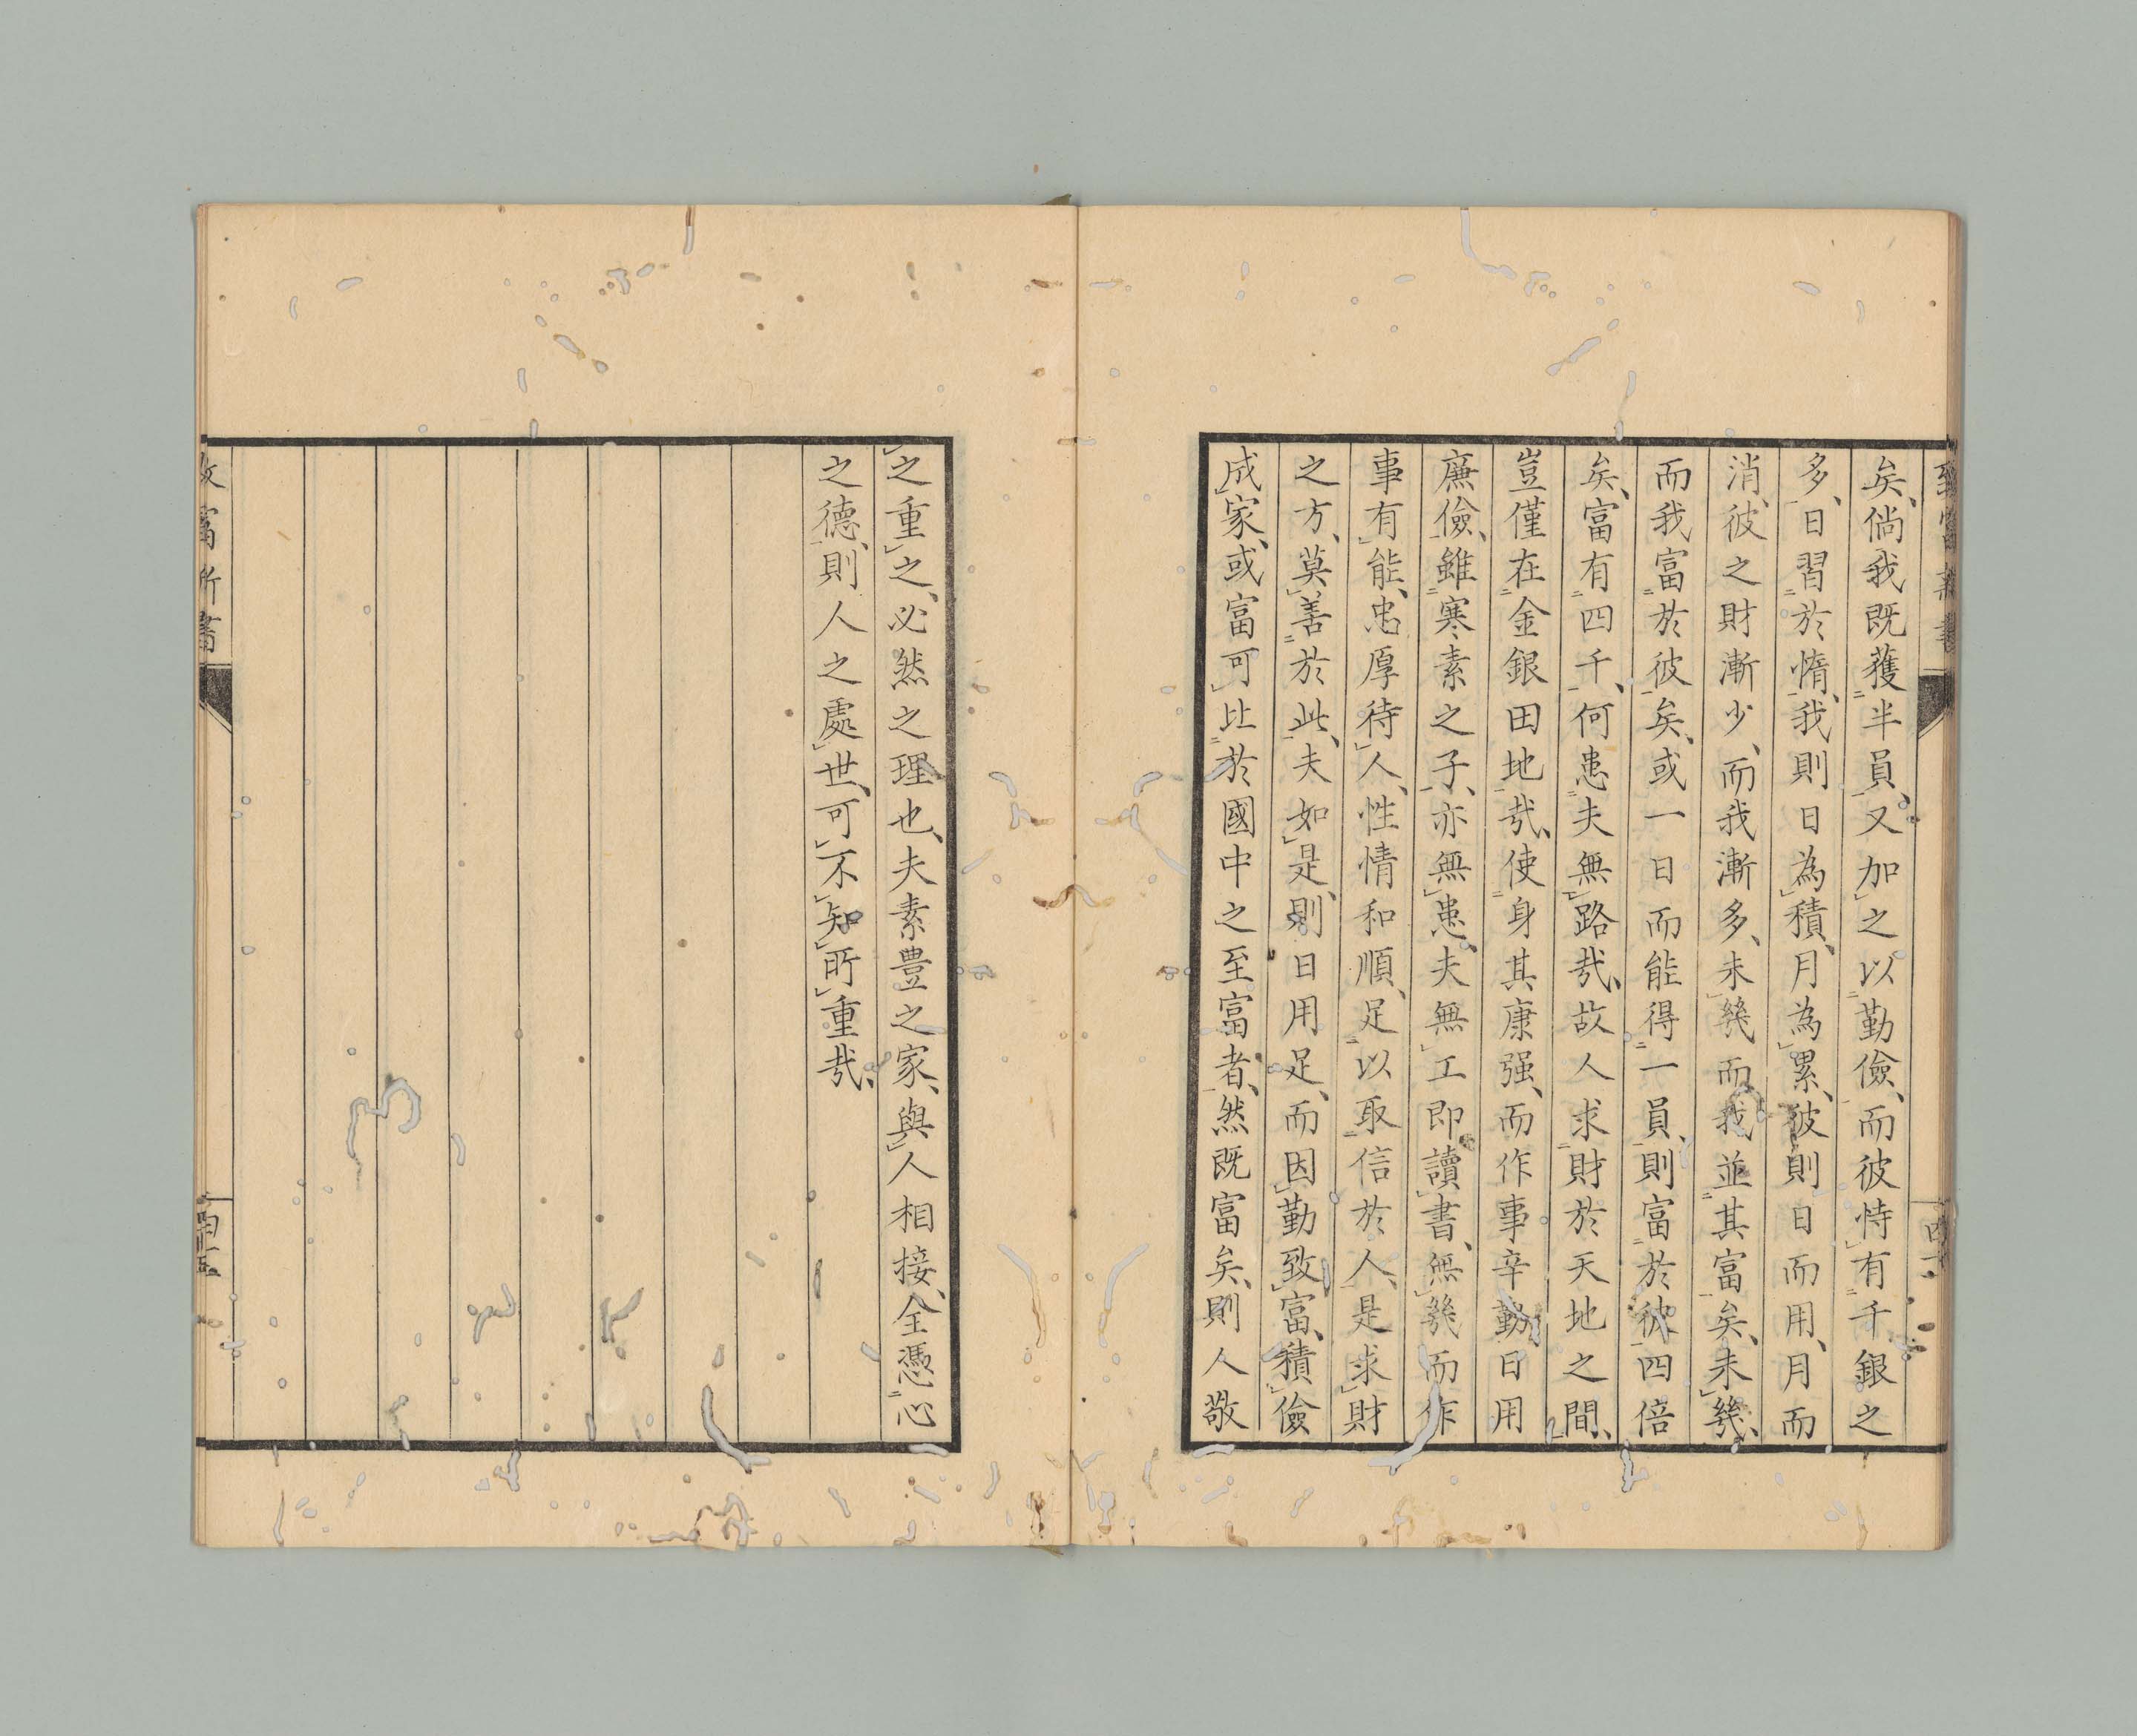 致富新書
矣、倘我既獲半員、又加之以勤儉、而彼恃有千銀之
多、日習於惰、我則日為積、月為累、彼則日而用、月而
消、彼之財漸少、而我漸多、未幾而我並其富矣、未幾、
而我富於彼矣、或一日而能得一員、則富於彼四倍
矣、富有四千、何患夫無路哉、故人求財於天地之間、
豈僅在金銀田地哉、使身其康强、而作事辛勤、日用
廉儉、雖寒素之子、亦無患、夫無工即讀書、無幾而作
事有能、忠厚待人、性情和順、足以取信於人、是求財
之方、莫善於此、夫如是、則日用足、而因勤致富、積儉
成家、或富可比於國中之至富者、然既富矣、則人敬
之重之、必然之理也、夫素豊之家、與人相接、全憑心
之德、則人之處世、可不知所重哉、